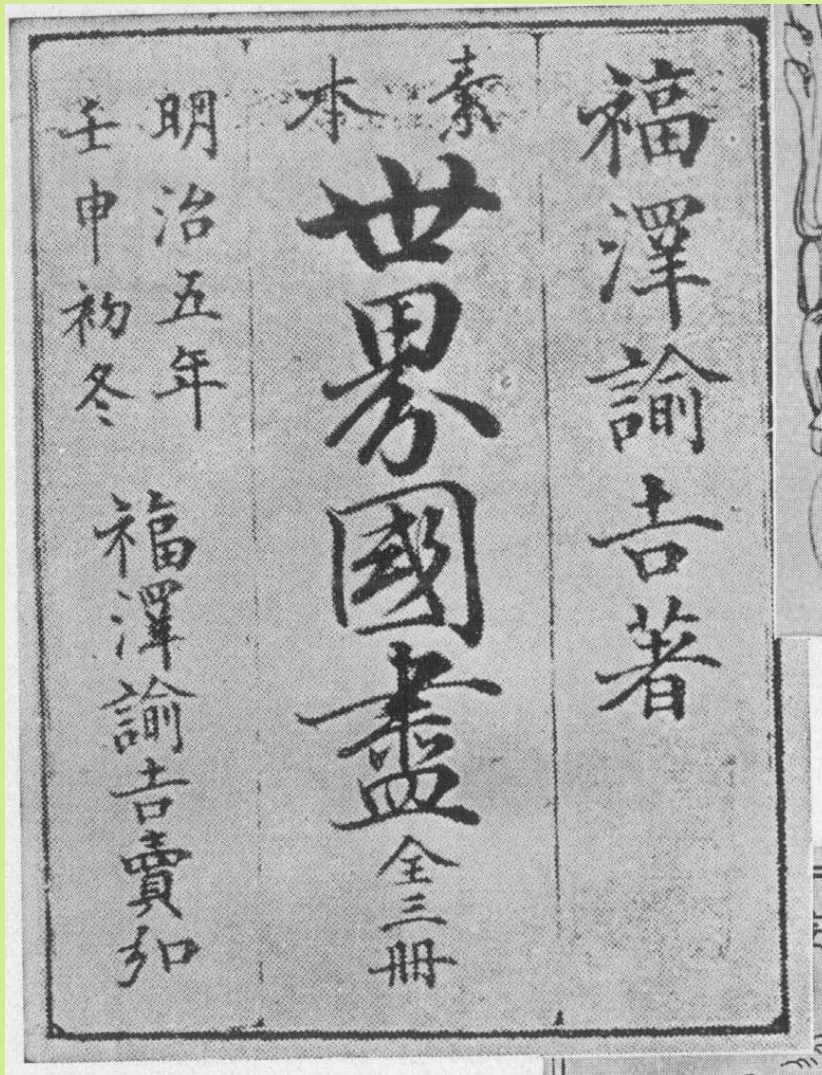 福澤諭吉著
素本
世界國盡 全三冊
明治五年
壬申初冬
福澤諭吉賣弘